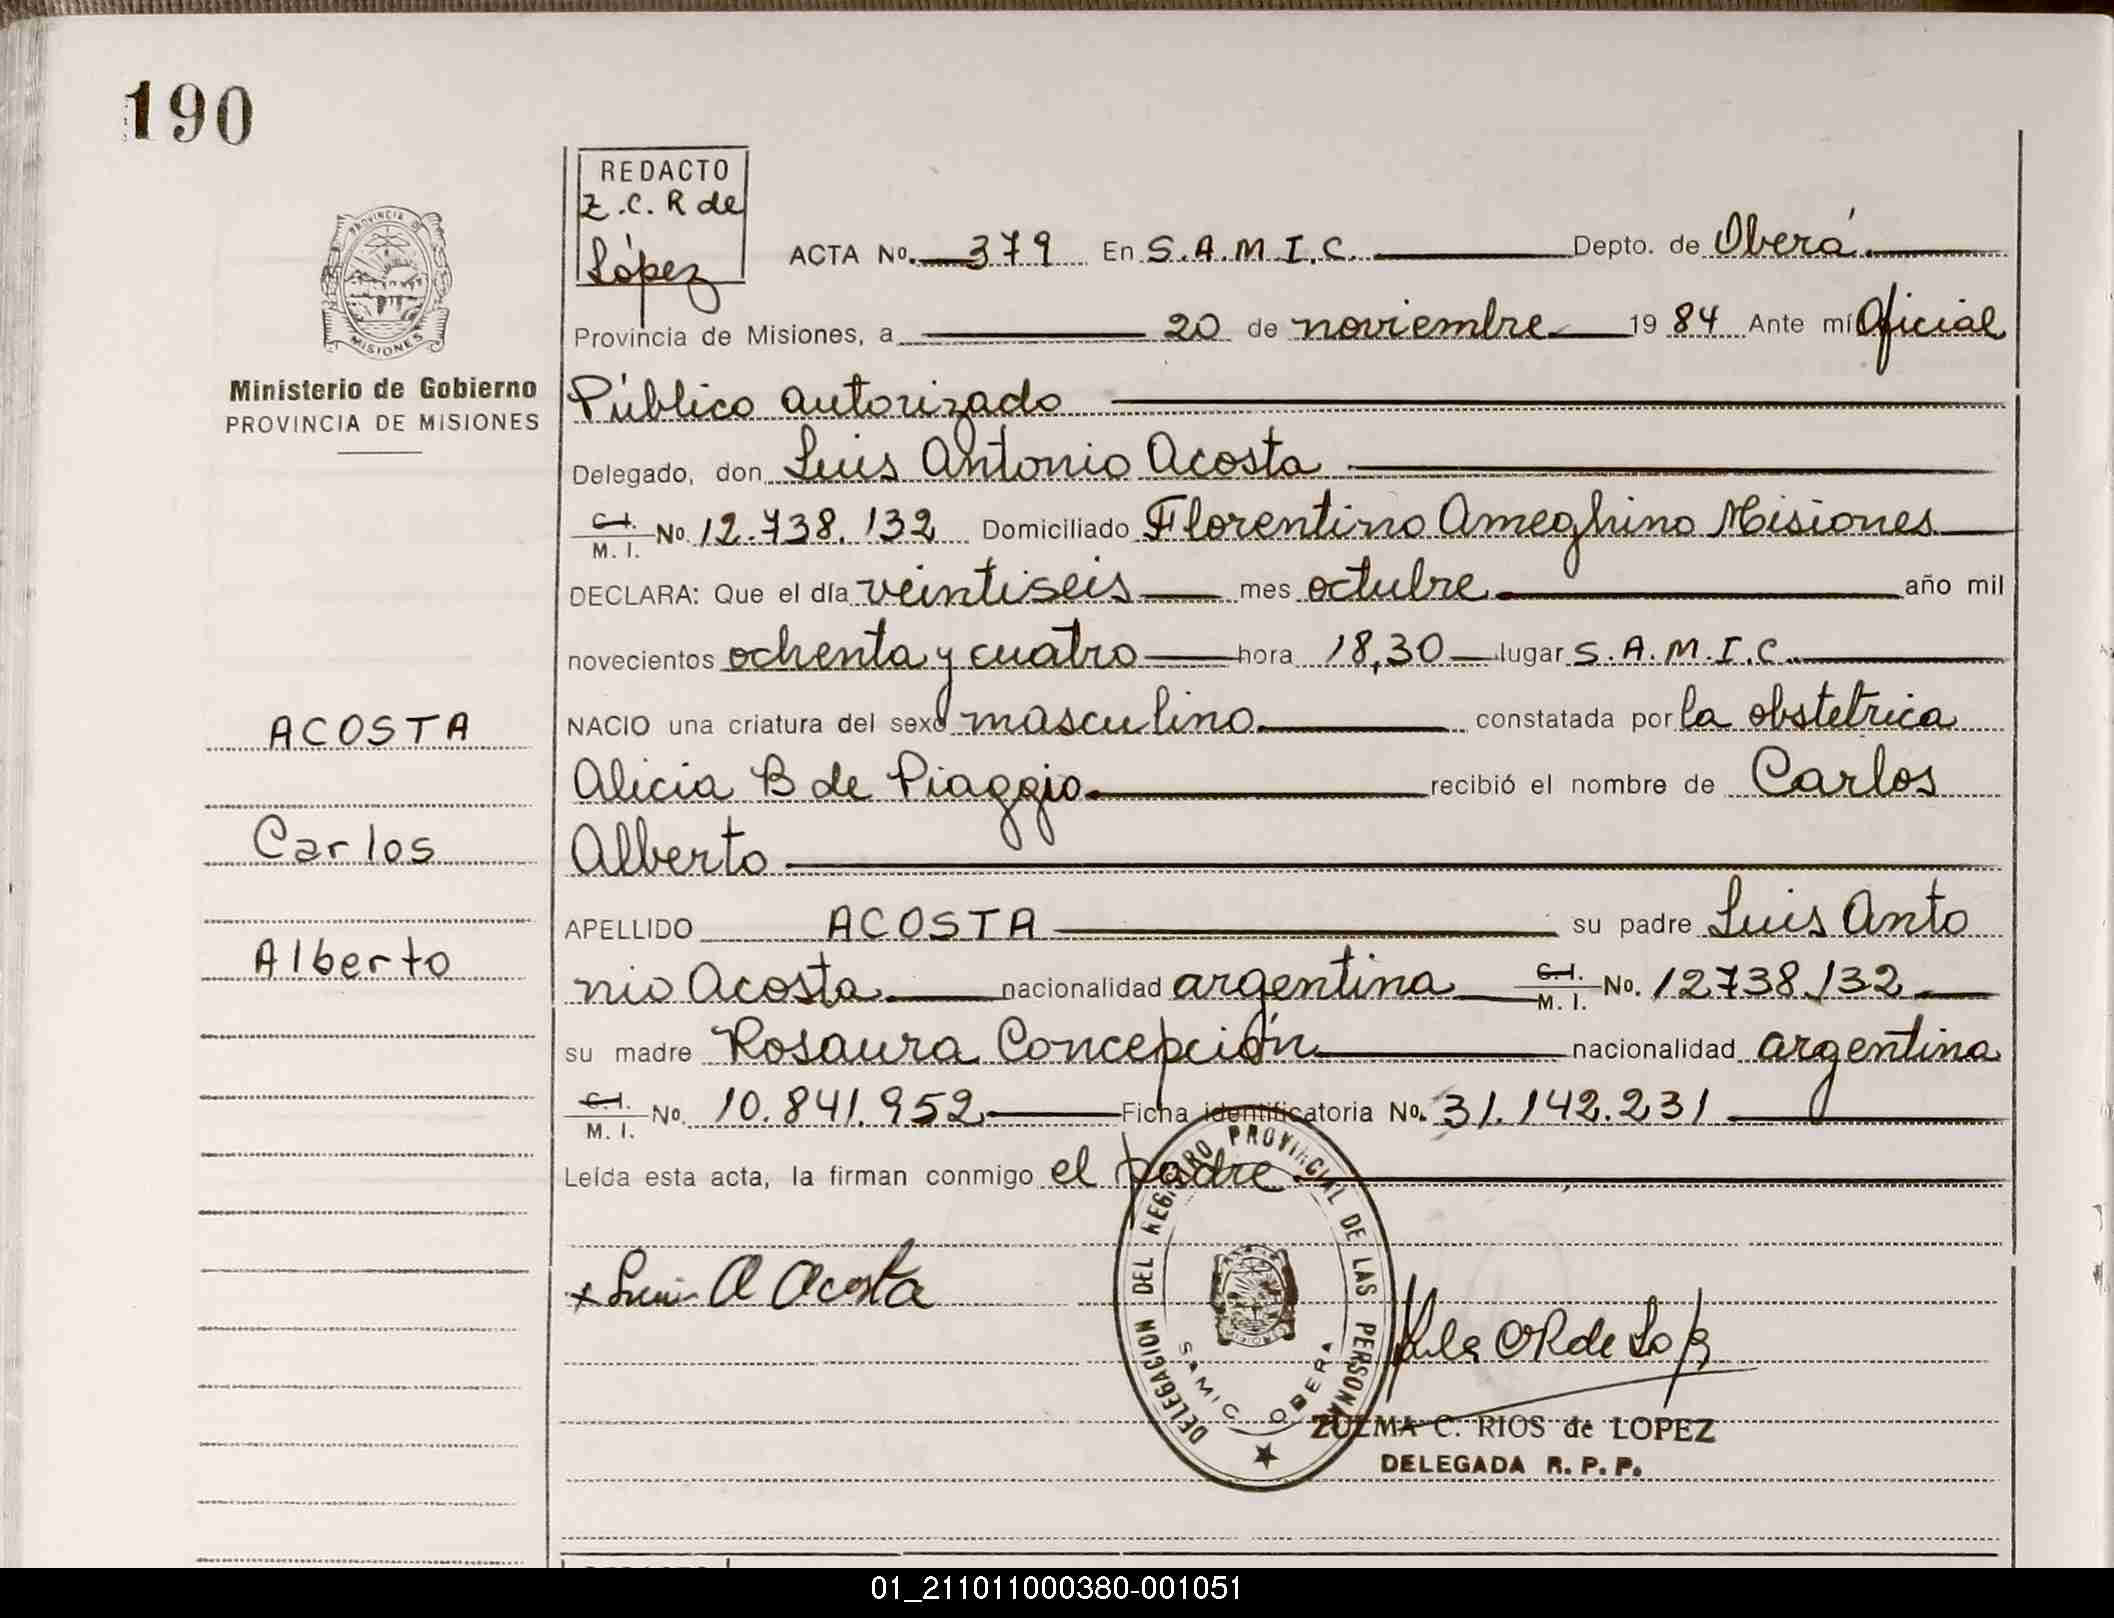 190
REDACTO
Z.C.R de
López
PROVINCIA DE
MISIONES
Ministerio de Gobierno
PROVINCIA DE MISIONES
ACTA No. 379 En S.A.M.I.C. Depto. de Oberá
Provincia de Misiones, a 20 de noviembre 1984 Ante mí Oficial
Público autorizado
Delegado, don Luis Antonio Acosta
C.I. M.I. No. 12.738.132 Domiciliado Florentino Ameghino Misiones
DECLARA: Que el día veintiseis mes octubre año mil
novecientos ochenta y cuatro hora 18,30 lugar S.A.M.I.C.
NACIO una criatura del sexo masculino constatada por la obstetrica
Alicia B de Piaggio recibió el nombre de Carlos
Alberto
APELLIDO ACOSTA su padre Luis Anto
nio Acosta nacionalidad argentina C.I. M.I. No. 12738.132
su madre Rosaura Concepción nacionalidad argentina
C.I. M.I. No. 10.841.952 Ficha identificatoria No. 31.142.231
Leída esta acta, la firman conmigo el padre
ACOSTA
Carlos
Alberto
x Luis A Acosta
DELEGACION DEL REGISTRO PROVINCIAL DE LAS PERSONAS
SAMIC OBERA
ZULMA C. RIOS de LOPEZ
DELEGADA R. P. P.
01_211011000380-001051